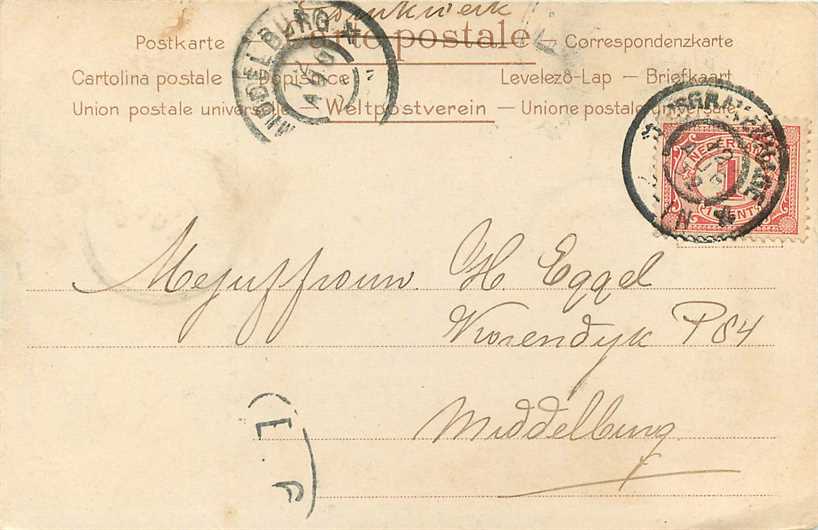 Drukwerk
Carte postale
Postkarte — Correspondenzkarte
Cartolina postale — Dopisnice — Levelező-Lap — Briefkaart
Union postale universelle — Weltpostverein — Unione postale universale
MIDDELBURG
'SGRAVENHAGE
NEDERLAND
1
CENT
Mejuffrouw H. Eggel
Korendijk P84
Middelburg